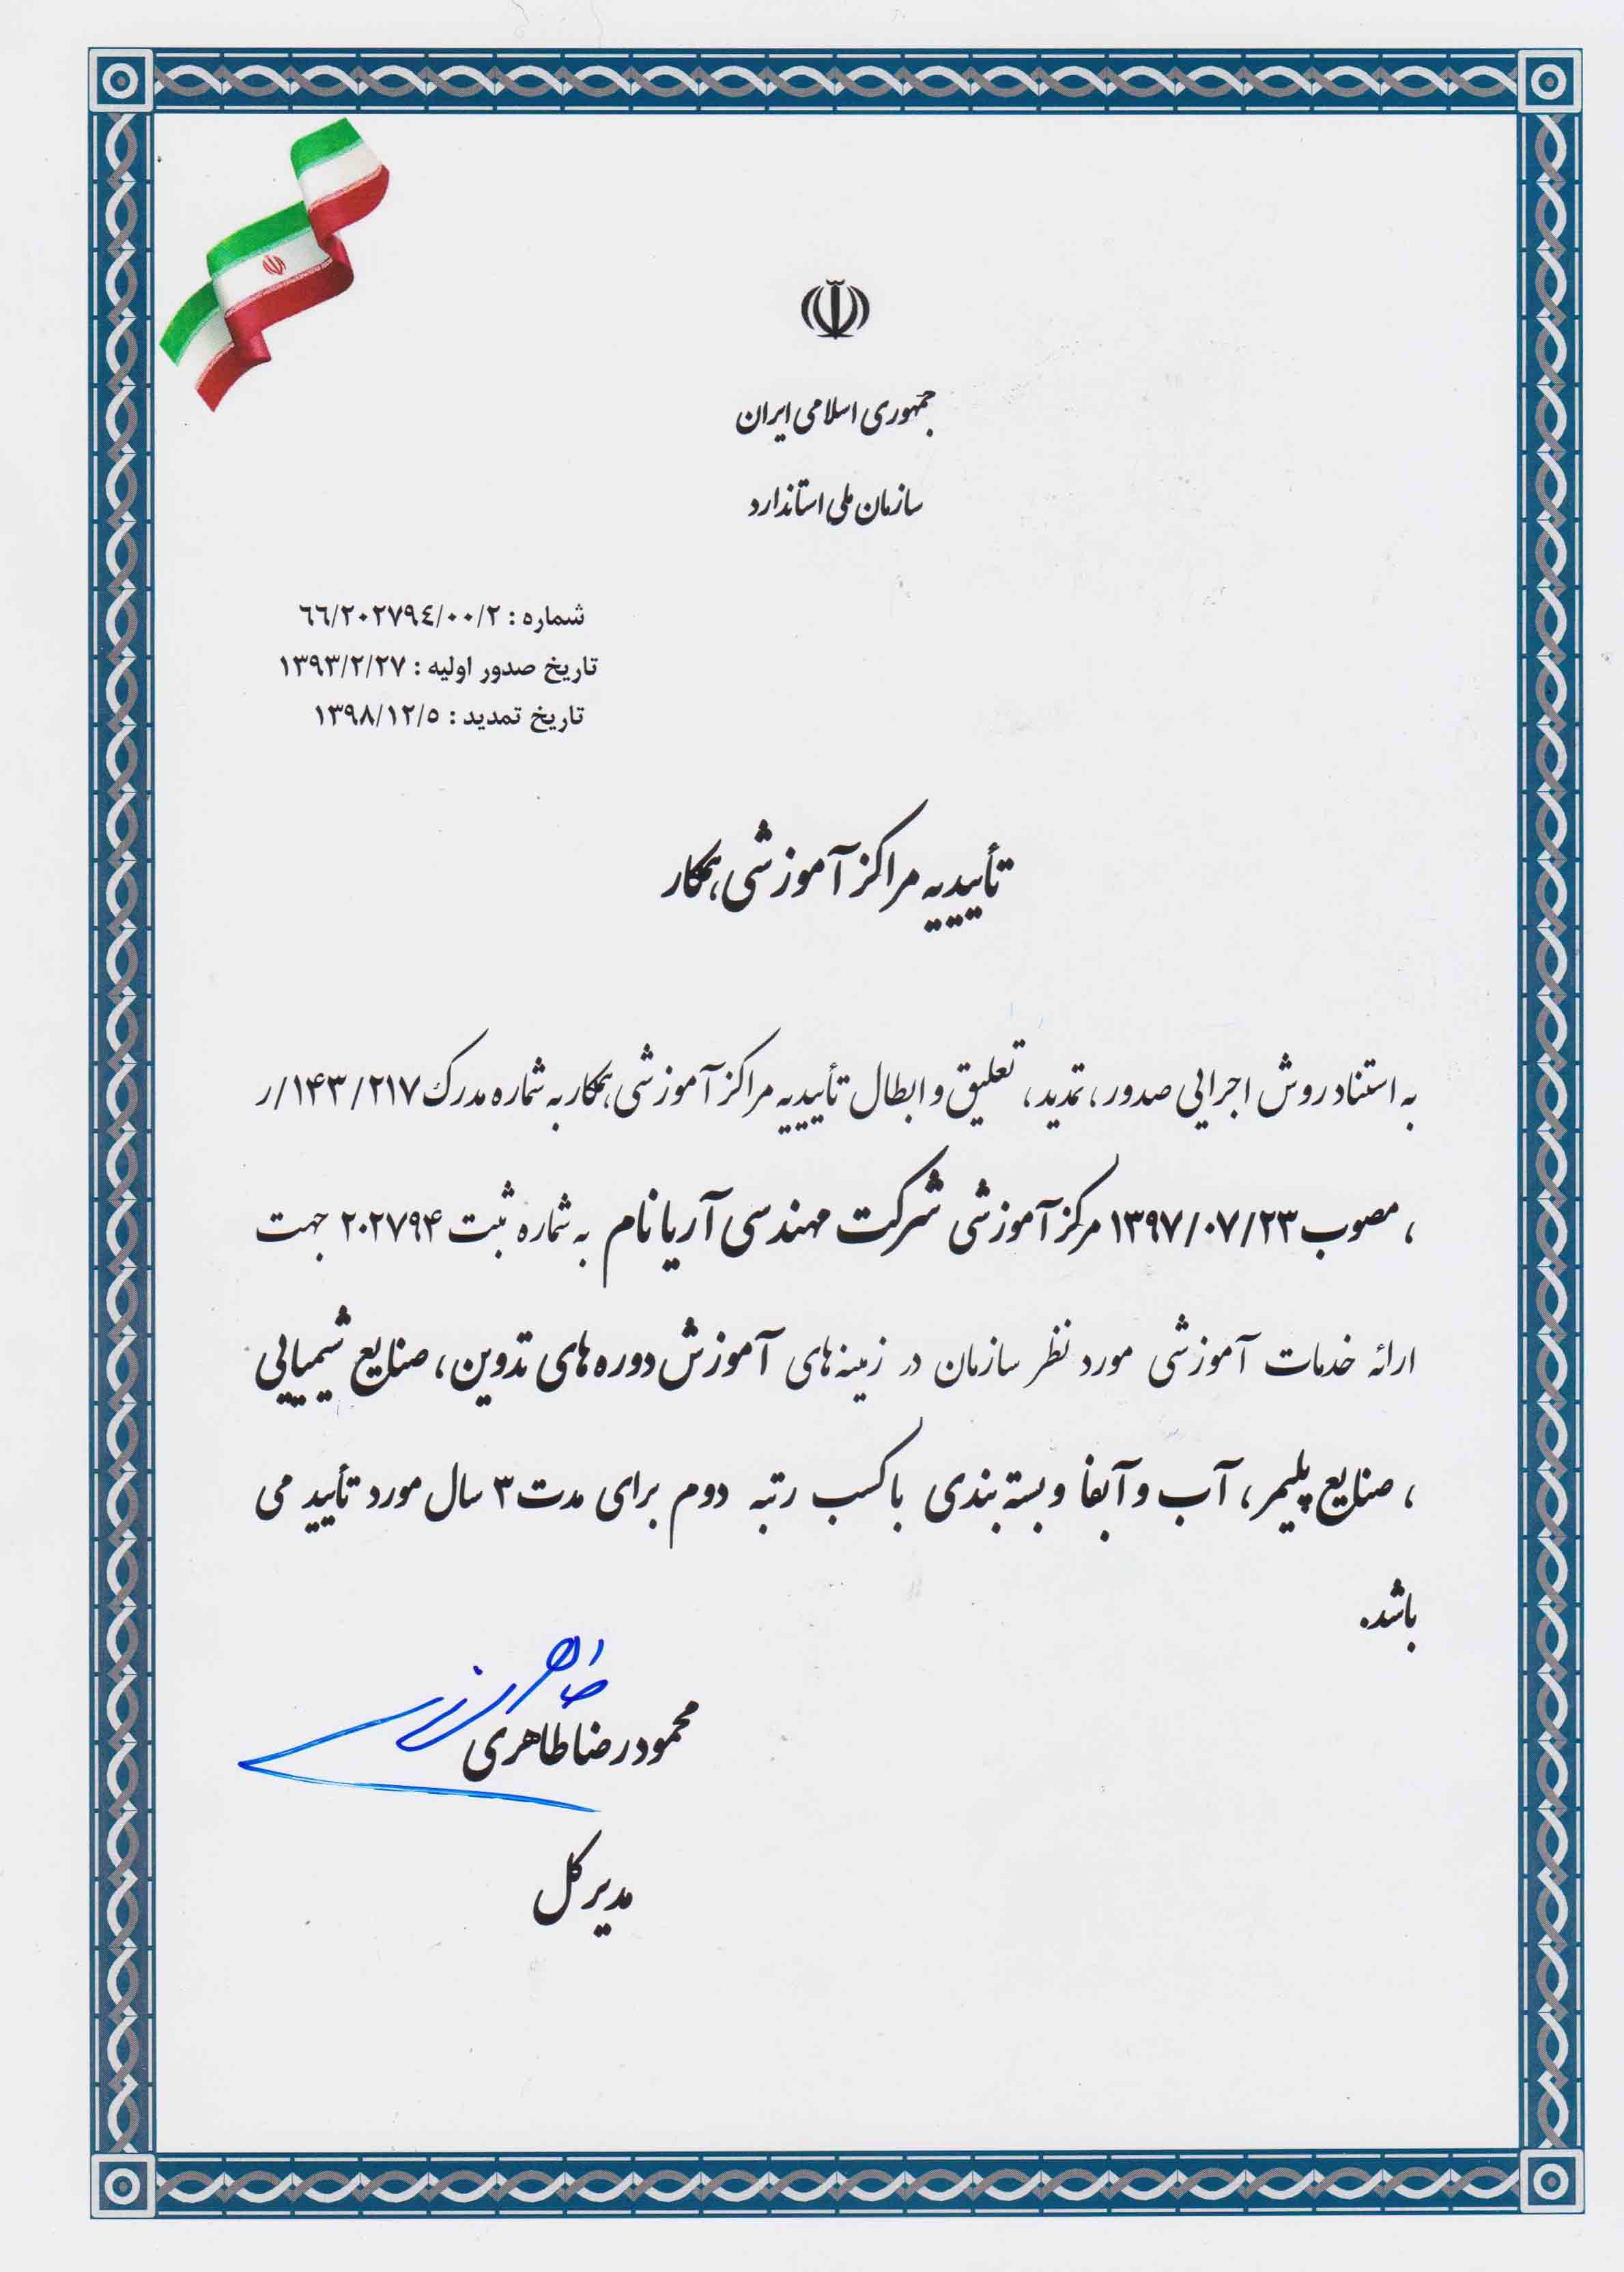 جمهوری اسلامی ایران
سازمان ملی استاندارد
شماره : ٦٦/٢٠٢٧٩٤/٠٠/٢
تاریخ صدور اولیه : ۱۳۹۳/۲/۲۷
تاریخ تمدید : ۱۳۹۸/۱۲/۵
تأییدیه مراکز آموزشی همکار
به استناد روش اجرایی صدور، تمدید، تعلیق و ابطال تأییدیه مراکز آموزشی همکار به شماره مدرک ۱۴۳/۲۱۷/ر
، مصوب ۱۳۹۷/۰۷/۲۳ مرکز آموزشی شرکت مهندسی آریا نام به شماره ثبت ۲۰۲۷۹۴ جهت
ارائه خدمات آموزشی مورد نظر سازمان در زمینه های آموزش دوره های تدوین، صنایع شیمیایی
، صنایع پلیمر، آب و آبفا و بسته بندی با کسب رتبه دوم برای مدت ۳ سال مورد تأیید می
باشد.
محمودرضا طاهری
مدیر کل